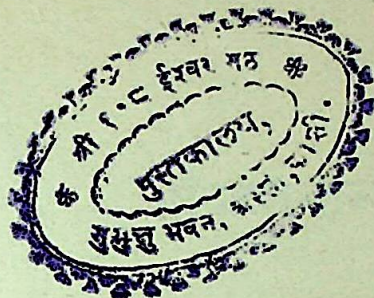 ❋ श्री १०८ ईश्वर मठ ❋
पुस्तकालय,
मुमुक्षु भवन,